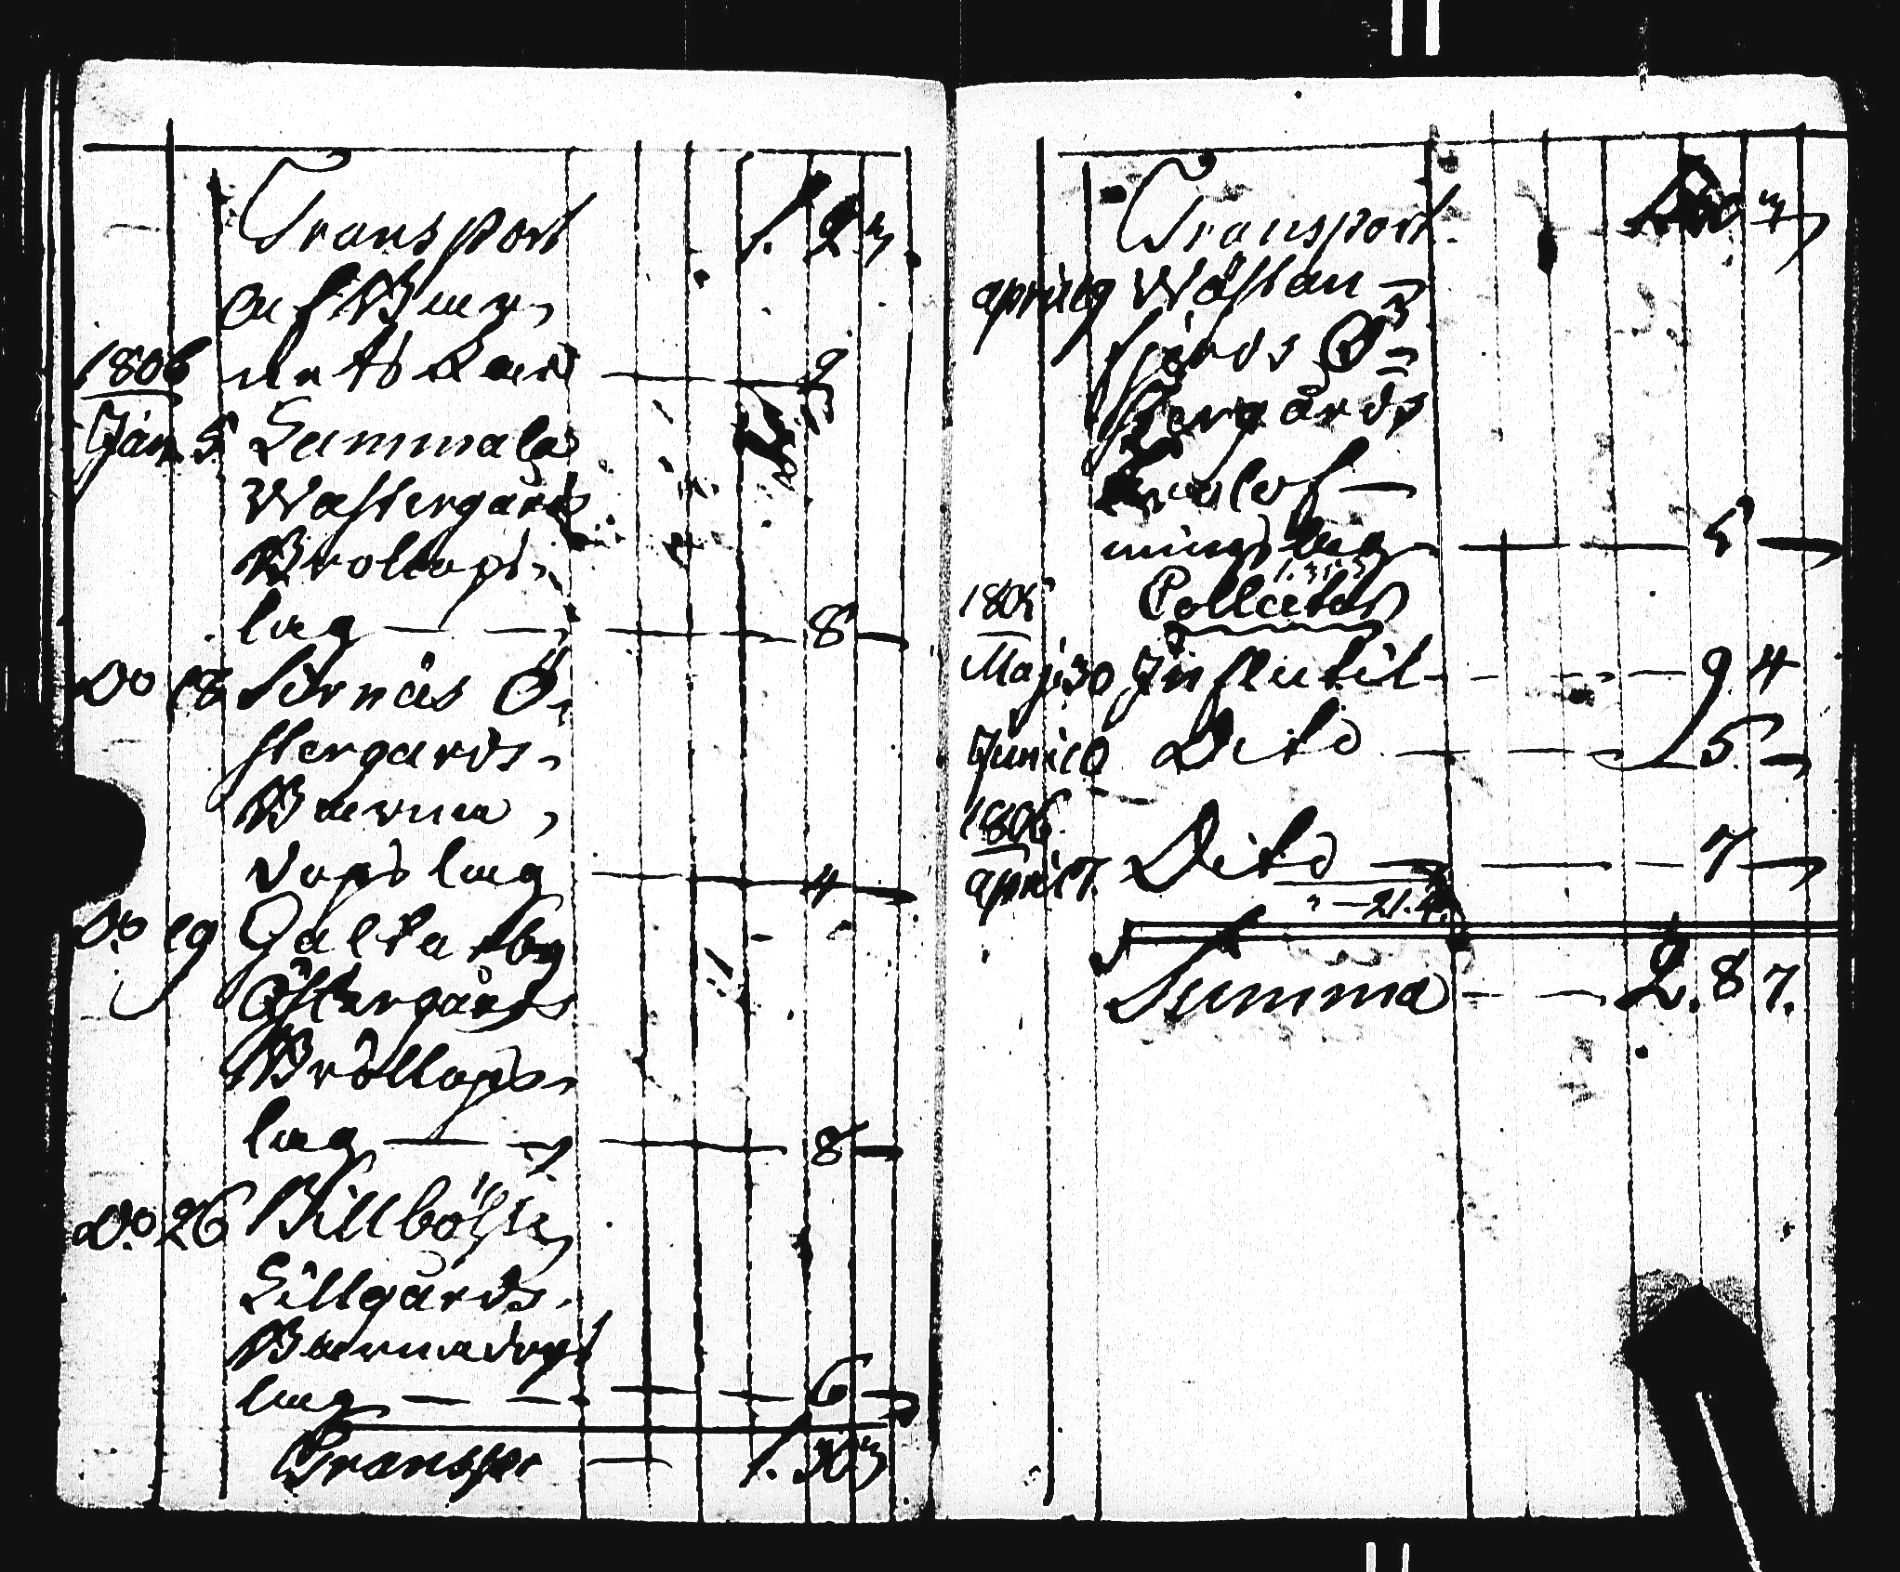 Transport 1. 2 3.
1806
Jan. 5 Lammala
Wästergårds
Bröllops-
lag — — 8 —
Do 18 Sernäs Ö-
stergårds-
Barna,
dops lag — 4 —
Do 19 Galtarby
Östergårds
Bröllops-
lag — — 8 —
Do 26 Billböhle
Lillgårds-
Barnadops
lag — — 6 —
Transpt — 1. 303
Transport
april 9 Wästan-
fjärds Ö-
stergårds
Trolof-
nings lag — 5 —
1. 35 3
1805 Collecter
Maji 30 Influtit — 9. 4
Junii 10 Dito — — 5. —
1806
april 7. Dito — — 7 —
" — 21. 4
Summa — — 2. 8 7.